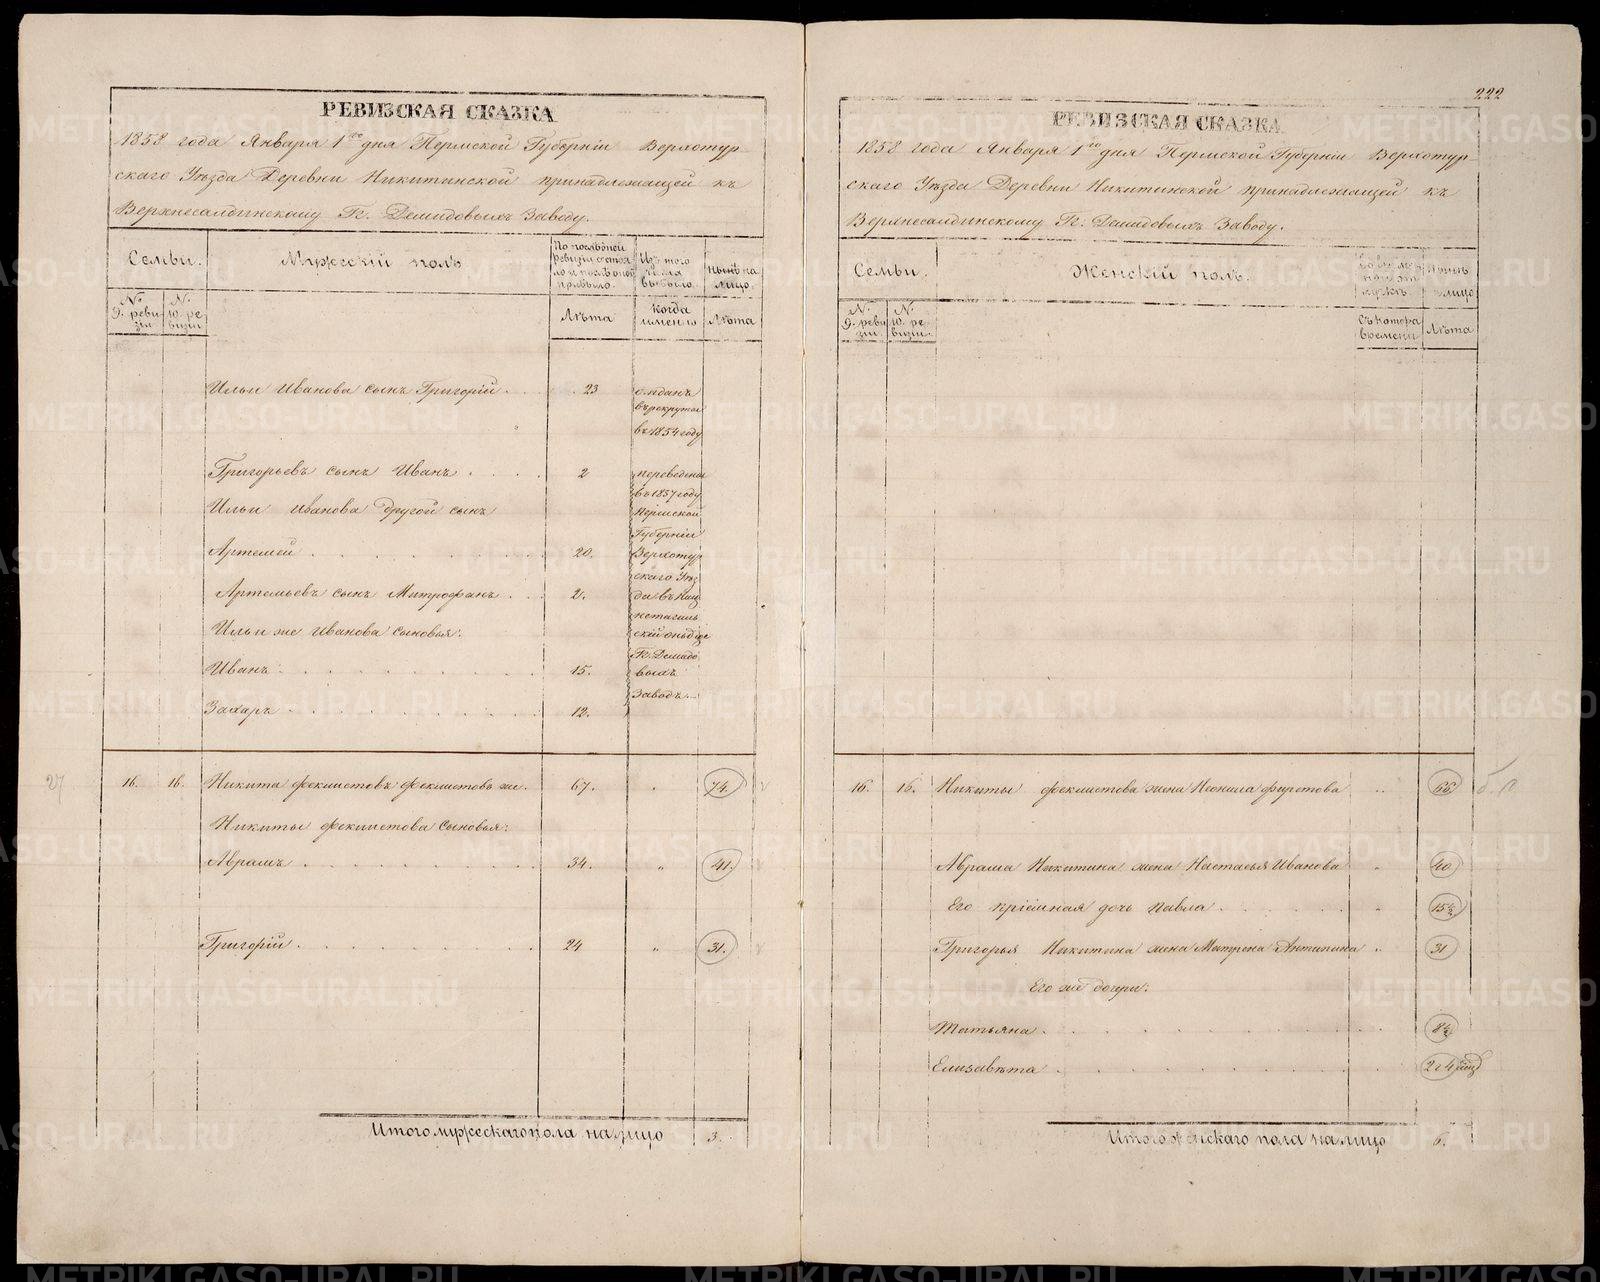 РЕВИЗСКАЯ СКАЗКА
1858 года Января 1го дня Пермской Губерніи Верхотур
скаго Уѣзда Деревни Никитинской принадлежащей къ
Верхнесалдинскому Гг. Демидовыхъ Заводу.
Семьи.
Мужескій полъ
По послѣдней ревизіи состояло и послѣ оной прибыло.
Изъ того числа выбыло.
Нынѣ на лицо.
№ 9. ревизіи
№ 10. ревизіи
Лѣта
Когда именно
Лѣта
Ильи Иванова сынъ Григорій. 23 отданъ
въ рекруты
въ 1854 году
Григорьевъ сынъ Иванъ 2 переведены
въ 1857 году
Ильи Иванова другой сынъ Пермской
Губерніи
Артемей 20. Верхотур
скаго Уѣз
Артемьевъ сынъ Митрофанъ 2. да въ Ниж
нетагиль
Ильи же Иванова сыновья: скій
Гг. Демидо
Иванъ 15. выхъ
Заводъ.
Захаръ 12.
27 16. 16. Никита Феклистовъ Феклистовъ же. 67. 74.
Никиты Феклистова сыновья:
Аврамъ 34. " 41.
Григорій 24 " 31.
Итого мужескаго пола на лицо 3.
222
РЕВИЗСКАЯ СКАЗКА
1858 года Января 1го дня Пермской Губерніи Верхотур
скаго Уѣзда Деревни Никитинской принадлежащей къ
Верхнесалдинскому Гг. Демидовыхъ Заводу.
Семьи.
Женскій полъ.
Нынѣ на лицо
№ 9. ревизіи
№ 10. ревизіи
Съ котора времени
Лѣта
16. 16. Никиты Феклистова жена Неонила Фирстова " 66
Аврама Никитина жена Настасья Иванова " 40
Его пріёмная дочь Павла " 15½
Григорья Никитина жена Матрена Антипина " 31
Его же дочери:
Татьяна 8½
Елизавета
Итого женскаго пола на лицо 6.
METRIKI.GASO-URAL.RU